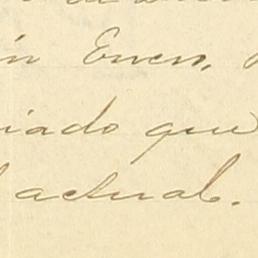 in Enero,
iado que
actual.